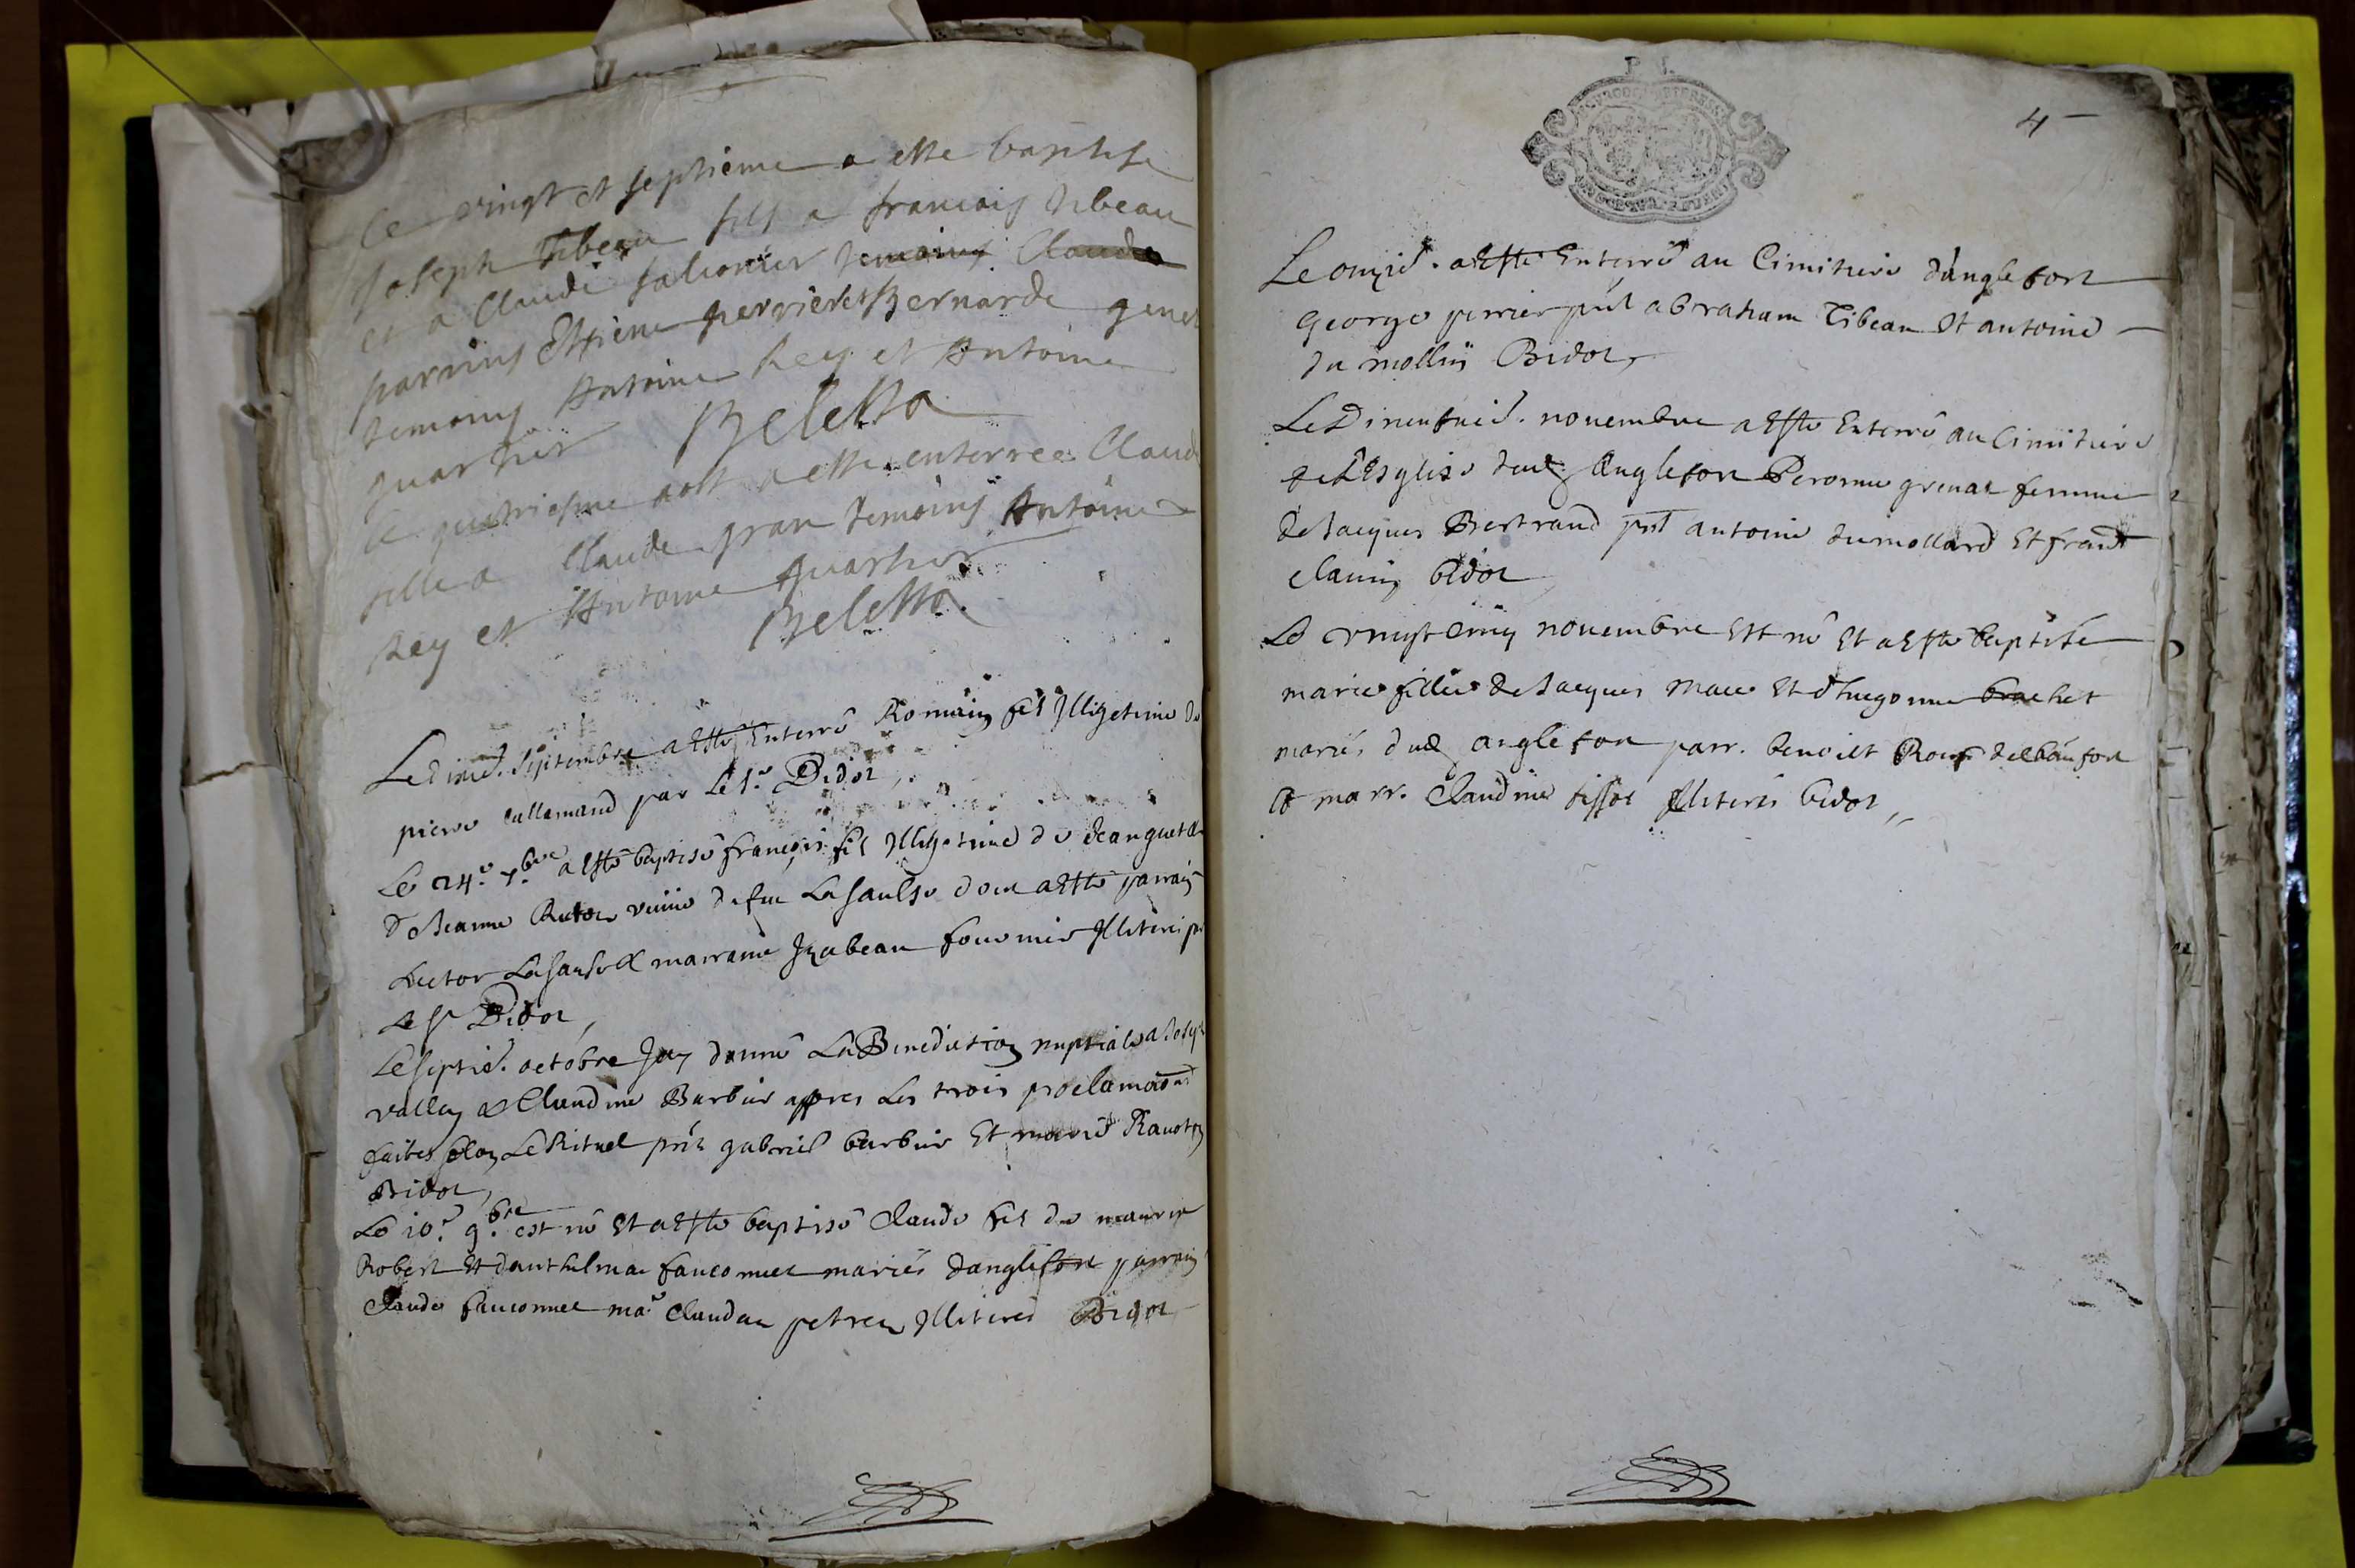 Le vingt et septieme a este baptise
Joseph Tibeau fils a francois tibeau
et a Claudi temoins Claude
parrins Estiene perrier et Bernarde
temoins Antoine Rey et Antoine
quartier Beletta
Le quatriesme aost a este enterree Claud
fille a Claude gran temoins Antoine
Rey et Antoine quartier
Beletta
Le dixie. Septembre a Esté Enterré Romain fils Illigetime de
pierre lallemand par Le Sr. Bidot,
Le 24e. 7bre a Esté baptisé françois fils Illigetime de
De Jeanne veuve de feu La saulse dont a Esté parrain
hector La saulse & marraine Izabeau fournier Illiterés p
Le Sr Bidot,
Le septie. octobre Jay donné La Benediction nuptiale a Joseph
vallay & Claudine Barbier appres Les trois proclamaons
faites selon Le Rituel pnt gabriel barbier Et marie
Bidot,
Le 10e. 9.bre est né Et a Esté baptisé Claude fils de maurice
Robert Et danthelmae fauconnet mariés danglefort parrain
Claude fauconnet mae. Claudaz Illiteres Bidot
P. I.
4
Le onzie. a Esté Enterré au Cimitiere danglefort
George perrier pnt abraham Tibeau Et antoine
du mollin Bidot,
Le Dineufvie. novembre a Esté Enterré au Cimitiere
de LEsglise dud. Anglefort Peronne grenat femme
de Jacques Bertrand pnt antoine dumollard Et
bidot
Le vingt cinq novembre Est né Et a Esté baptisée
marie fillie de Jacques mace Et dhugonne brachet
mariés dud anglefort parr. benoist
& marr. Claudine tissot Illiterés bidot,,